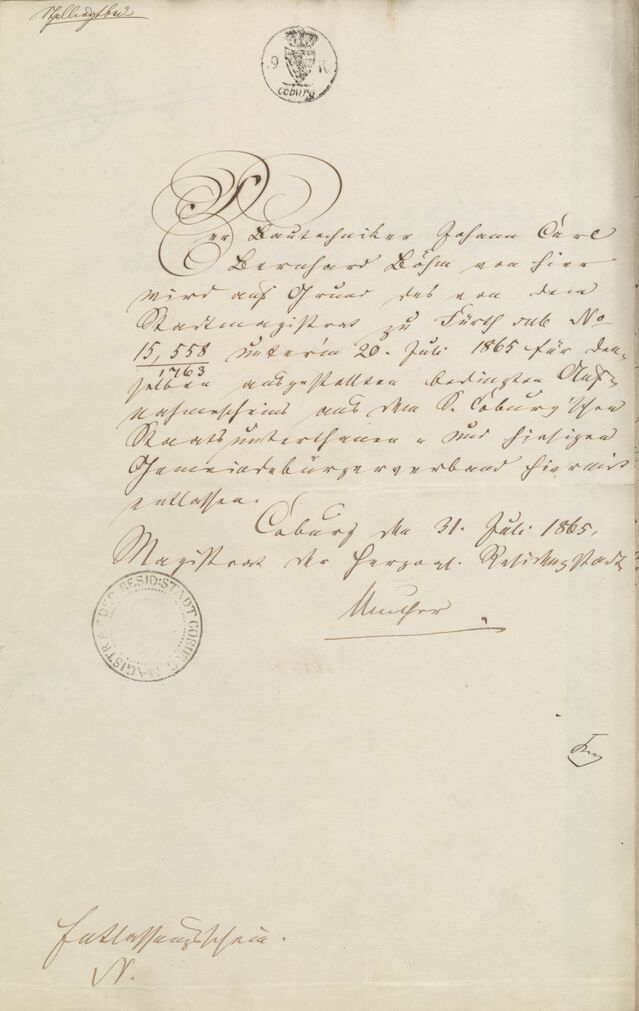 9 K
COBURG
Der Bautechniker Johann Carl
Bernhard Böhm von hier
wird auf Grund des von dem
Stadtmagistrat zu Fürth sub No
15,558
1763
unterm 20. Juli 1865 für den-
selben ausgestellten bedingten Auf-
nahmescheins aus dem S. Coburg'schen
Staatsunterthanen- und hiesigen
Gemeindebürgerverband hiermit
entlassen.
Coburg den 31. Juli 1865.
Magistrat der herzogl. Residenzstadt
Muther
MAGISTRAT DER RESID: STADT COBURG
Entlassungsschein.
N.